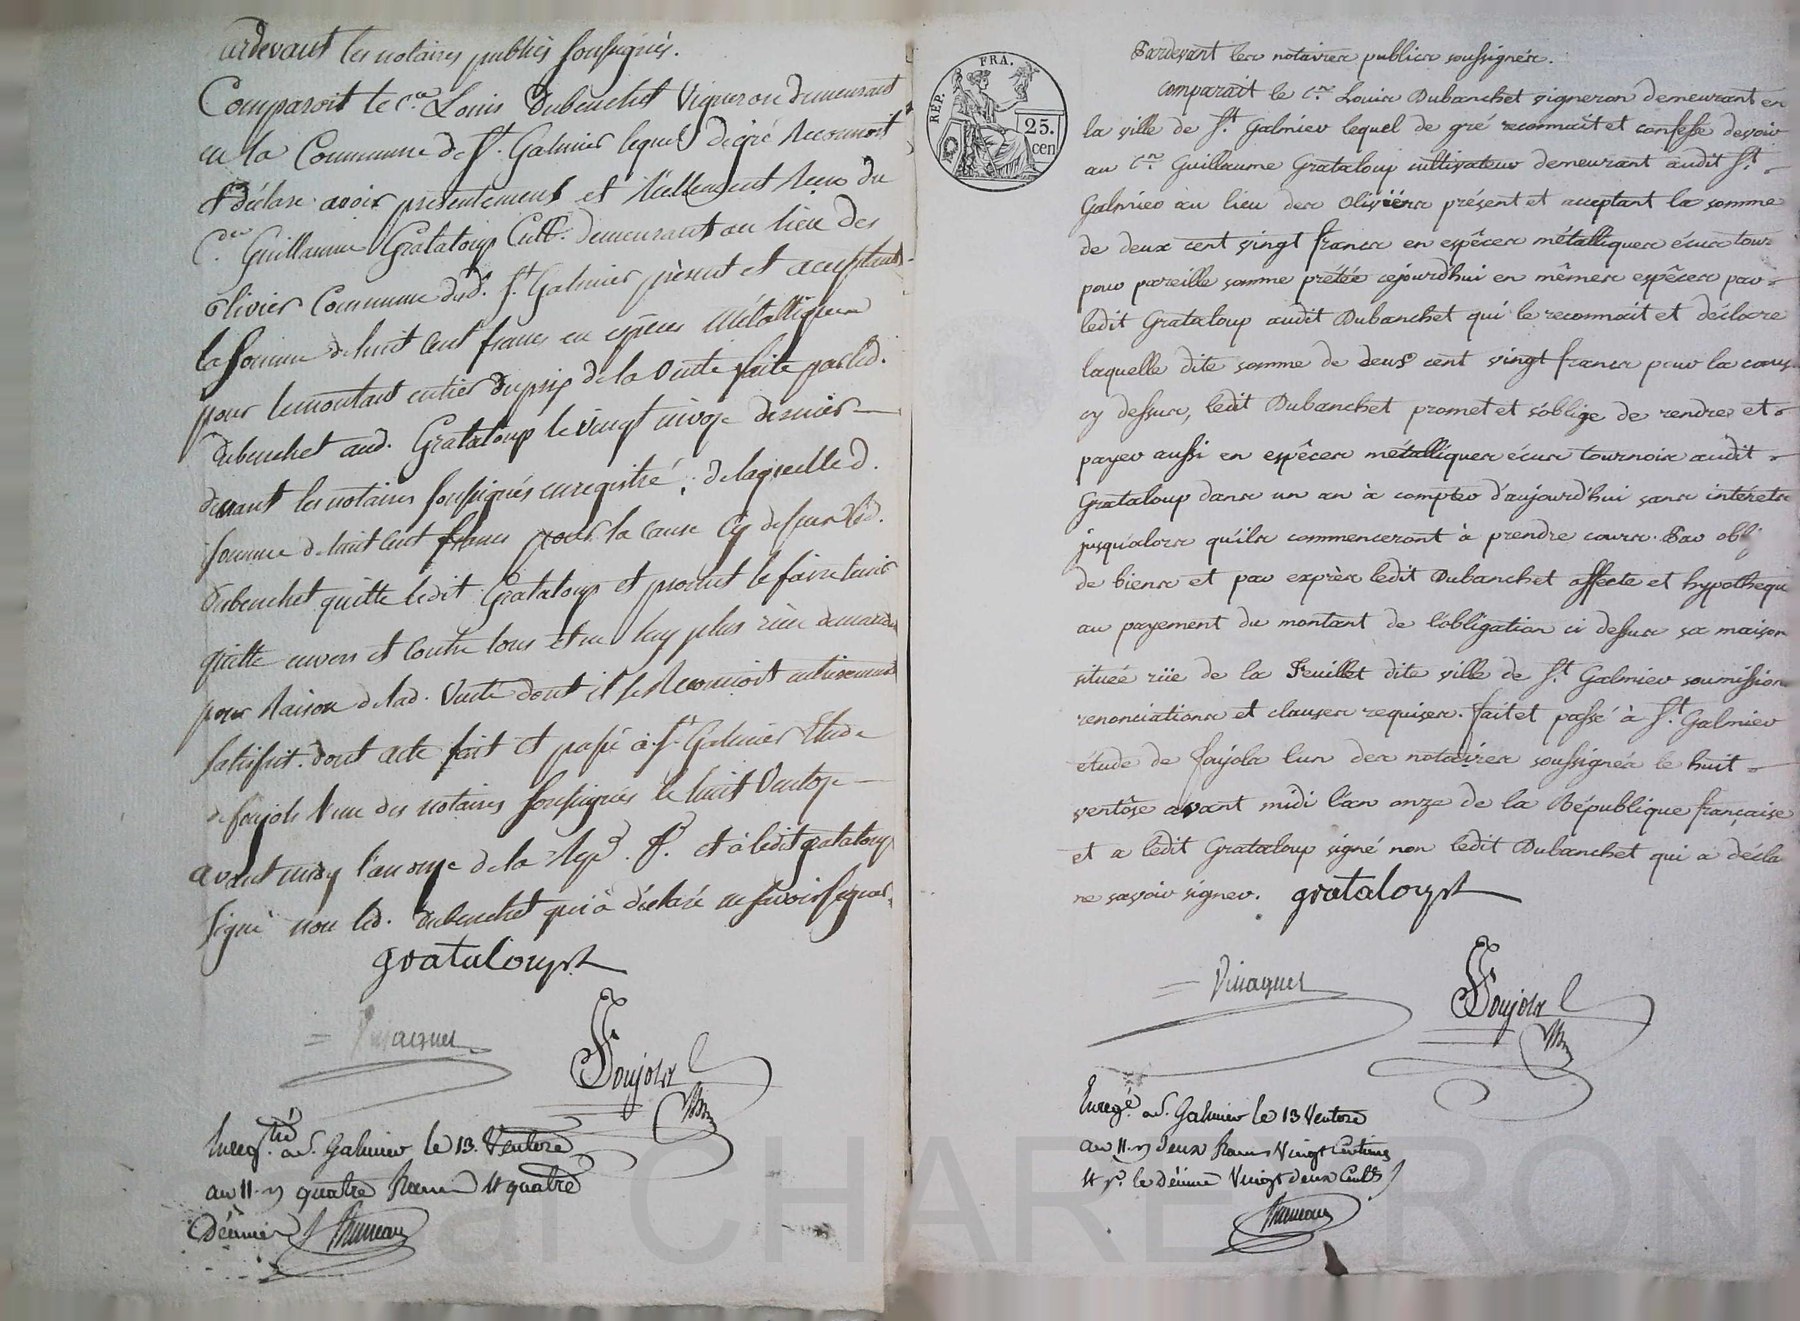 urdevant les notaires publics soussignés.
Comparoit le C.en Louis Dubenchet Vigneron demeurant
en la Commune de S.t Galmier lequel de gré Reconnoit
et déclare avoir présentement et Réellement Reçu du
C.en Guillaume Grataloup Cult.r demeurant au lieu des
olivier Commune dud. S.t Galmier présent et acceptant
la somme de huit cent francs en espèces métalliques
pour le montant entier du prix de la Vente faite par led.
dubenchet aud. Grataloup le vingt nivose dernier
devant les notaires soussignés enregistré, de laquelle d.
somme de huit cent francs pour la cause cy dessus led.
dubenchet quitte ledit Grataloup et promet le faire tenir
quitte envers et contre tous et ne luy plus rien demander
pour Raison de lad. Vente dont il se Reconnoit entièrement
satisfait. dont acte fait et passé à S.t Galmier Etude
de foujols l'un des notaires soussignés le huit Ventose
avant midy l'an onze de la Rep. f. et à ledit grataloup
signé non led. dubenchet qui à déclaré ne savoir signer.
grataloup
foujols
Enreg.tré à S. Galmier le 13. Ventose
an 11. quatre francs et quatre
Décimes
REP. FRA.
25. cen
Pardevant les notaires publics soussignés.
Comparait le C.en Louis Dubanchet vigneron demeurant en
la ville de S.t Galmier lequel de gré reconnait et confesse devoir
au C.en Guillaume Grataloup cultivateur demeurant audit S.t
Galmier au lieu des Oliviërs présent et acceptant la somme
de deux cent vingt francs en espêces métalliques écus tour
pour pareille somme prêtée cejourd'hui en mêmes espêces par
ledit Grataloup audit Dubanchet qui le reconnait et déclare
laquelle dite somme de deux cent vingt francs pour la caus
cy dessus, ledit Dubanchet promet et s'oblige de rendre et
payer aussi en espêces métalliques écus tournois audit
Grataloup dans un an à compter d'aujourd'hui sans intérets
jusqu'alors qu'ils commenceront à prendre cours. Par obl
de biens et par exprès ledit Dubanchet affecte et hypothequ
au payement du montant de l'obligation ci dessus sa maison
située rüe de la Feuillet dite ville de S.t Galmier soumission
renonciations et clauses requises. fait et passé à S.t Galmier
étude de foujols l'un des notaires soussignés le huit
ventôse avant midi l'an onze de la République française
et a ledit Grataloup signé non ledit Dubanchet qui a décla
ne savoir signer. grataloup
foujols
Enreg.é à S. Galmier le 13 Ventose
an 11. deux francs Vingt Centimes
et p.r le Décime Vingt deux Cent.s
CHARETRON